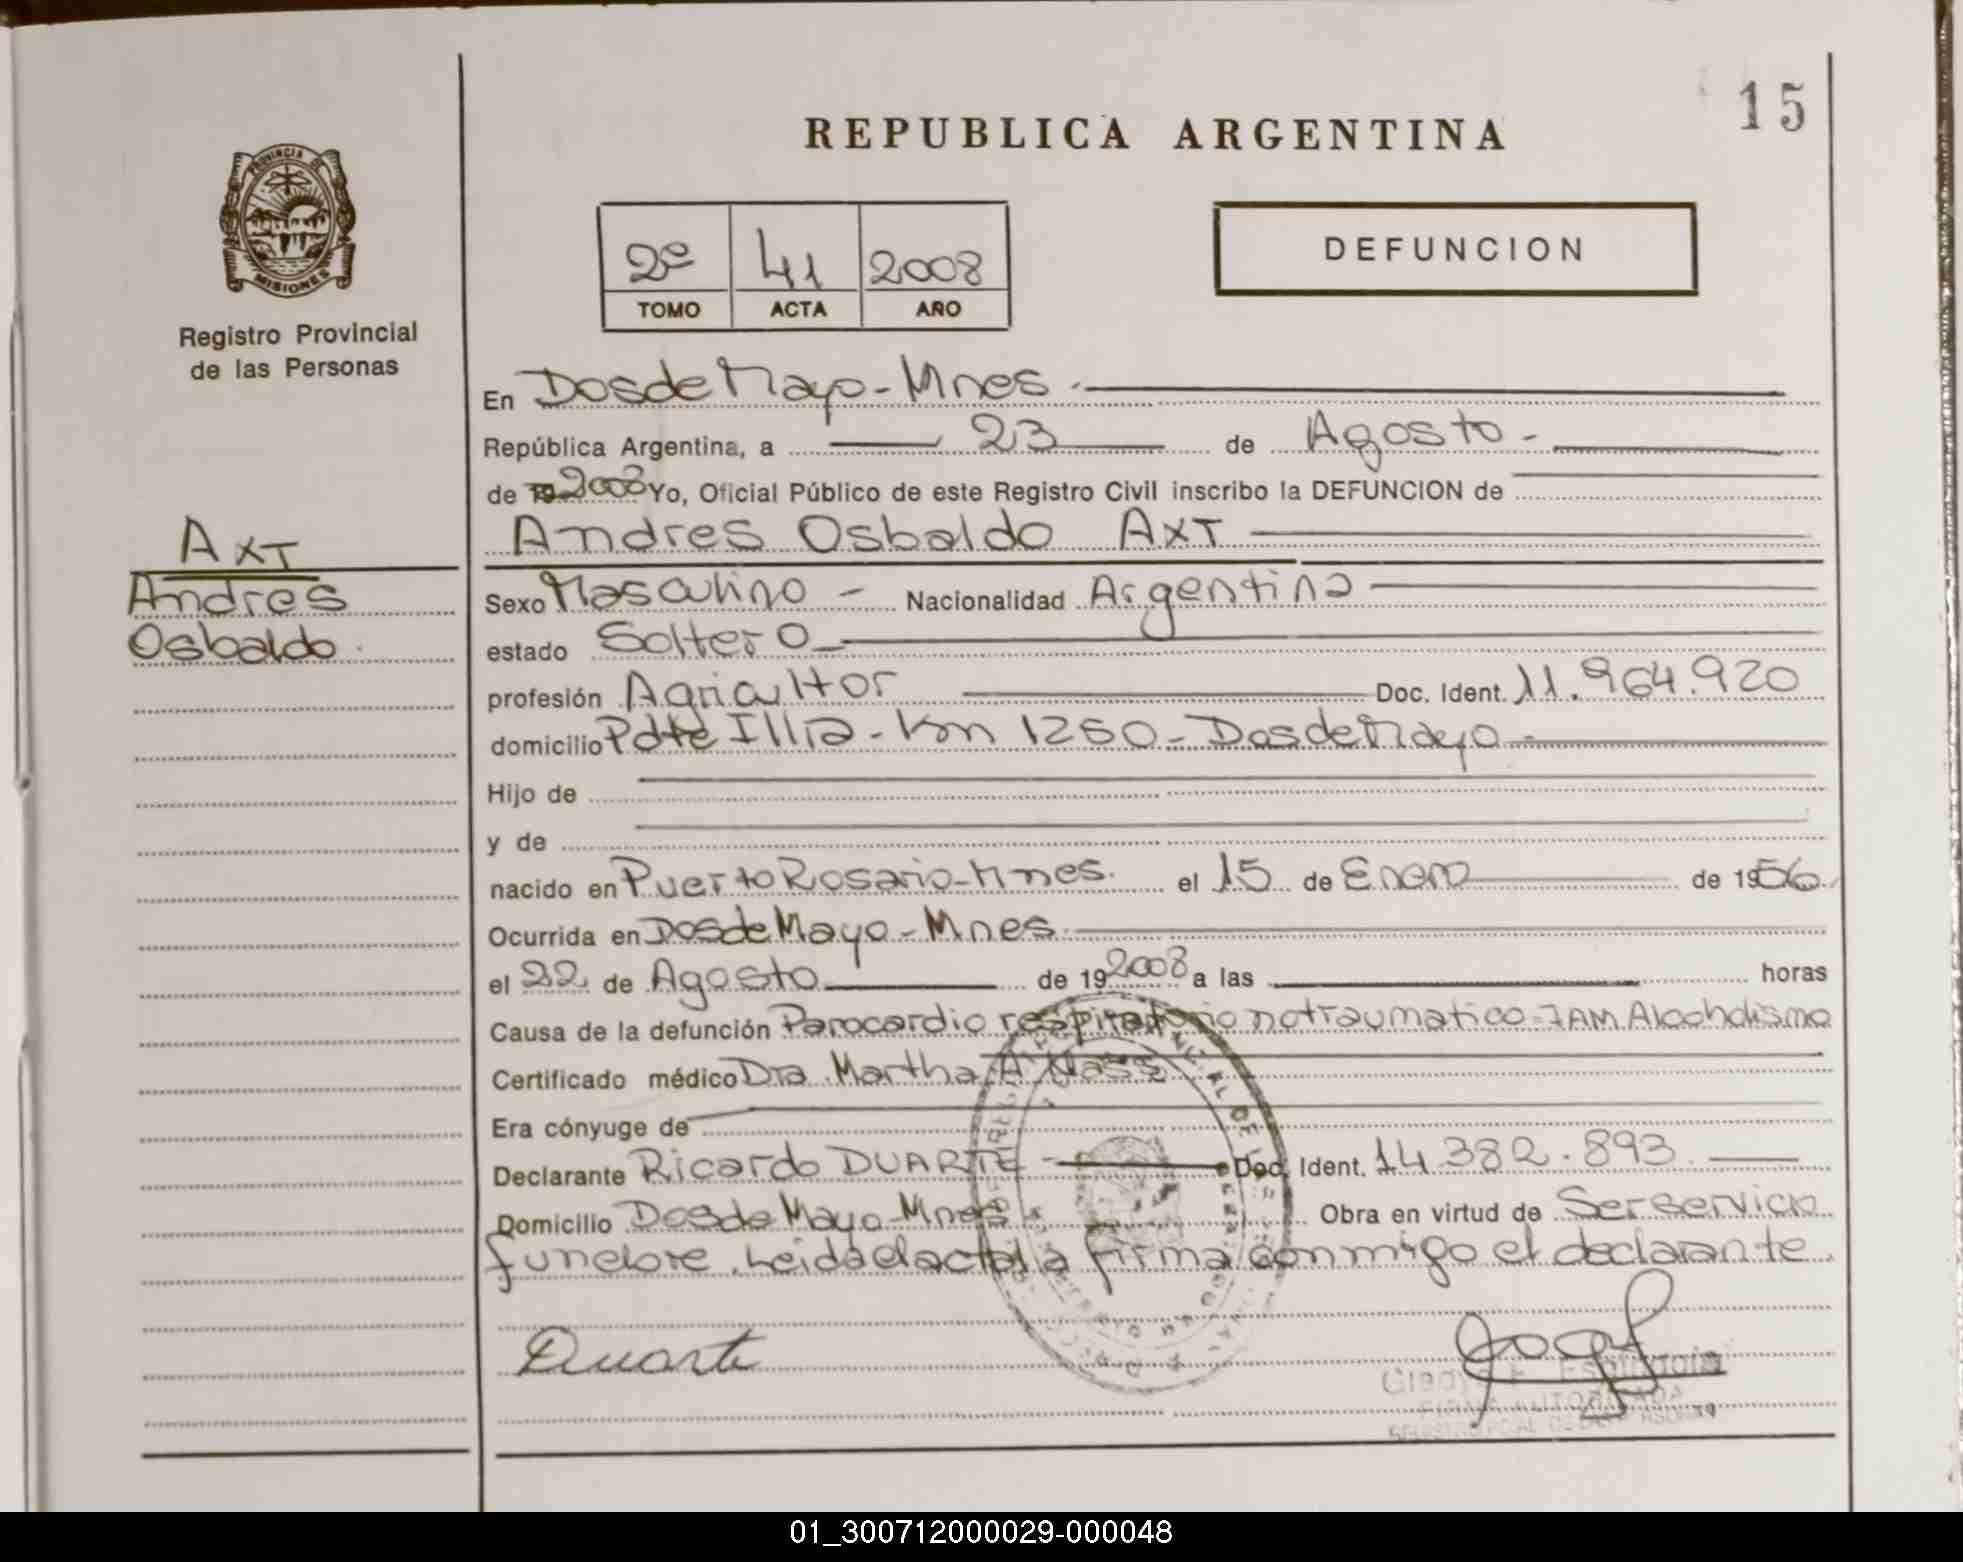 15
REPUBLICA ARGENTINA
PROVINCIA DE
MISIONES
Registro Provincial
de las Personas
2º 41 2008
TOMO ACTA AÑO
DEFUNCION
En Dos de Mayo - Mnes.
República Argentina, a 23 de Agosto -
de 19 2008 Yo, Oficial Público de este Registro Civil inscribo la DEFUNCION de
Andres Osbaldo AXT
AXT
Andres
Osbaldo.
Sexo Masculino - Nacionalidad Argentina
estado Soltero
profesión Agricultor Doc. Ident. 11.964.920
domicilio Pdte Illia - Km 1250 - Dos de Mayo -
Hijo de
y de
nacido en Puerto Rosario - Mnes. el 15 de Enero de 1956
Ocurrida en Dos de Mayo - Mnes.
el 22 de Agosto de 19 2008 a las horas
Causa de la defunción Paro cardio respiratorio no traumatico - IAM Alcoholismo
Certificado médico Dra. Martha A. Nass
Era cónyuge de
Declarante Ricardo DUARTE - Doc. Ident. 14.382.893
Domicilio Dos de Mayo - Mnes. Obra en virtud de Ser servicio
funebre. Leida el acta la firma conmigo el declarante.
Duarte
FIRMA AUTORIZADA
01_300712000029-000048